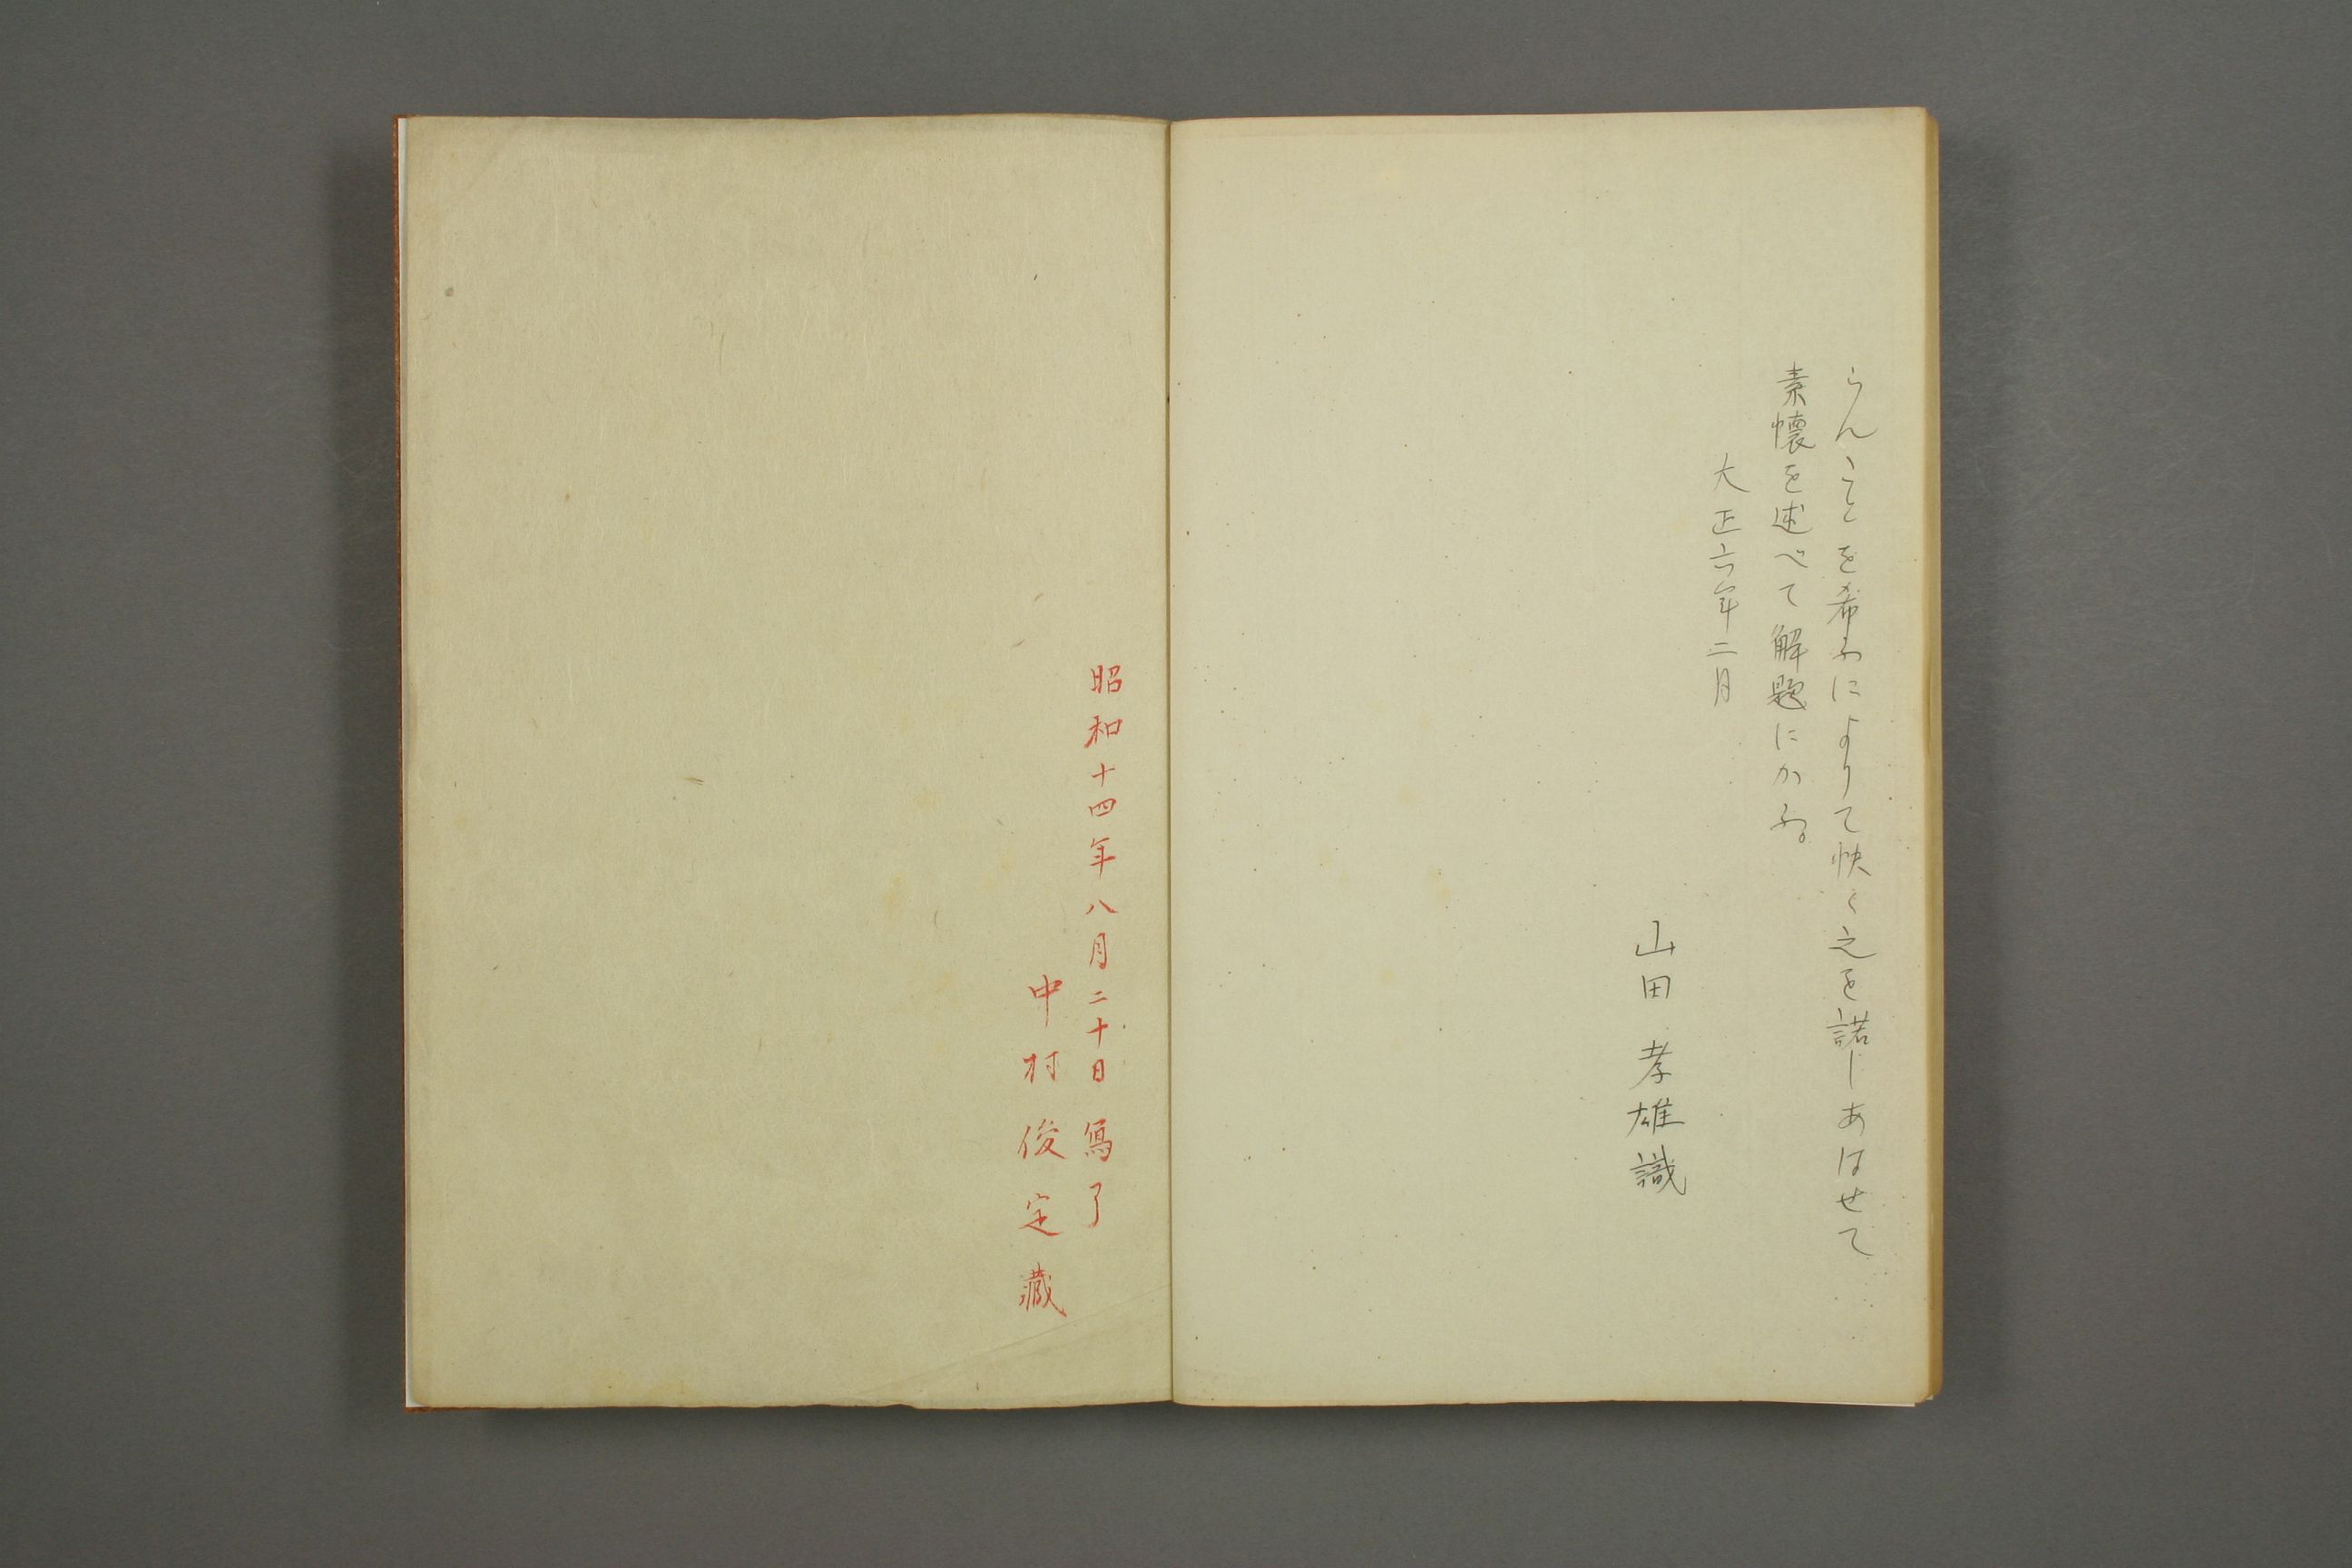 らんことを希ふによりて快く之を諾しあはせて
素懐を述べて解題にかふ。
大正六年二月
山田孝雄識
昭和十四年八月二十日寫了
中村俊定藏